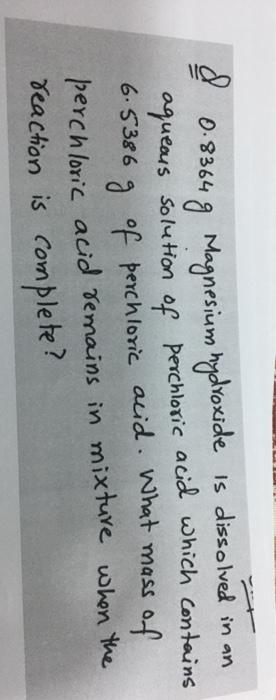 Q 0.8364 g Magnesium hydroxide is dissolved in an
aqueous solution of perchloric acid which contains
6.5386 g of perchloric acid. What mass of
perchloric acid remains in mixture when the
reaction is complete?